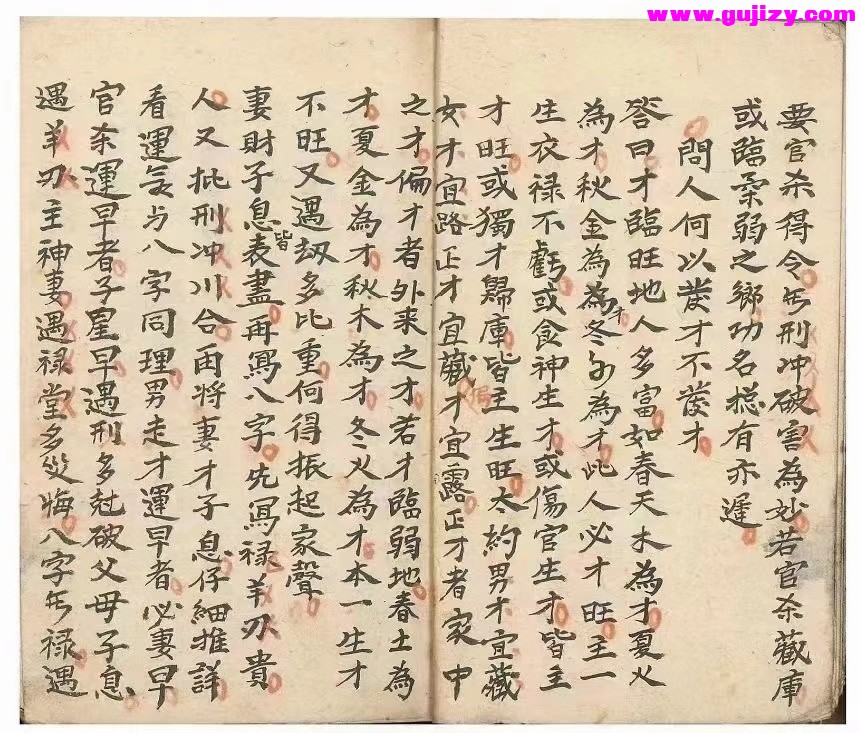 www.gujizy.com
要官杀得令与刑冲破害為妙若官杀藏庫
或臨柔弱之鄉功名摠有亦遲
問人何以發才不發才
答曰才臨旺地人多富如春天木為才夏火
為才秋金為為才冬水為才此人必才旺主一
生衣禄不虧或食神生才或傷官生才皆主
才旺或獨才歸庫皆主生旺大約男才宜藏
女才宜路正才宜藏偏才宜露正才者家中
之才偏才者外来之才若才臨弱地春土為
才夏金為才秋木為才冬火為才本一生才
不旺又遇刼多比重何得振起家聲
妻財子息皆表盡再寫八字先寫禄羊刃貴
人又批刑冲川合再将妻才子息仔細推詳
看運氣与八字同理男走才運早者必妻早
官杀運早者子星早遇刑多尅破父母子息
遇羊刃主神妻遇禄堂多災悔八字与禄遇